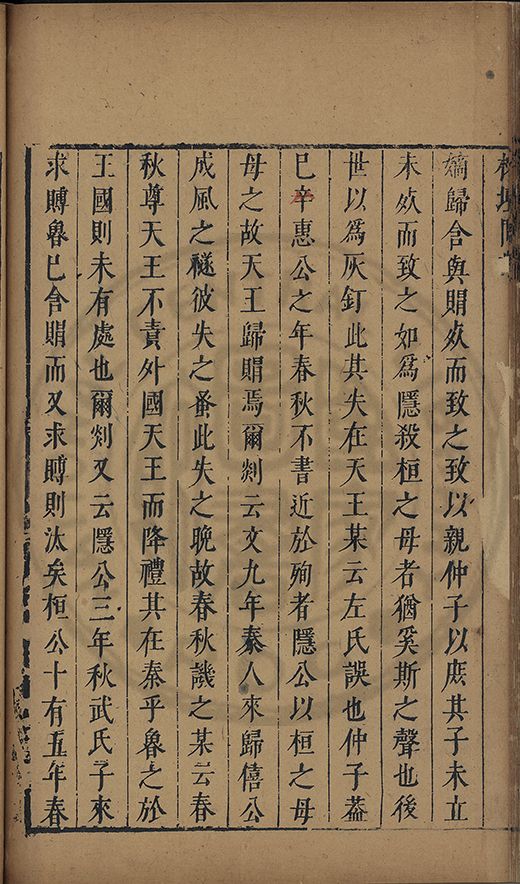 嫡歸含與賵㱙而致之致以親仲子以庶其子未立
未㱙而致之如爲隱殺桓之母者猶奚斯之聲也後
世以爲灰釘此其失在天王某云左氏誤也仲子葢
巳辛惠公之年春秋不書近於殉者隱公以桓之母
母之故天王歸賵焉爾剡云文九年秦人來歸僖公
成風之襚彼失之蚤此失之晚故春秋譏之某云春
秋尊天王不責外國天王而降禮其在秦乎魯之於
王國則未有處也爾剡又云隱公三年秋武氏子來
求賻魯巳含賵而又求賻則汰矣桓公十有五年春